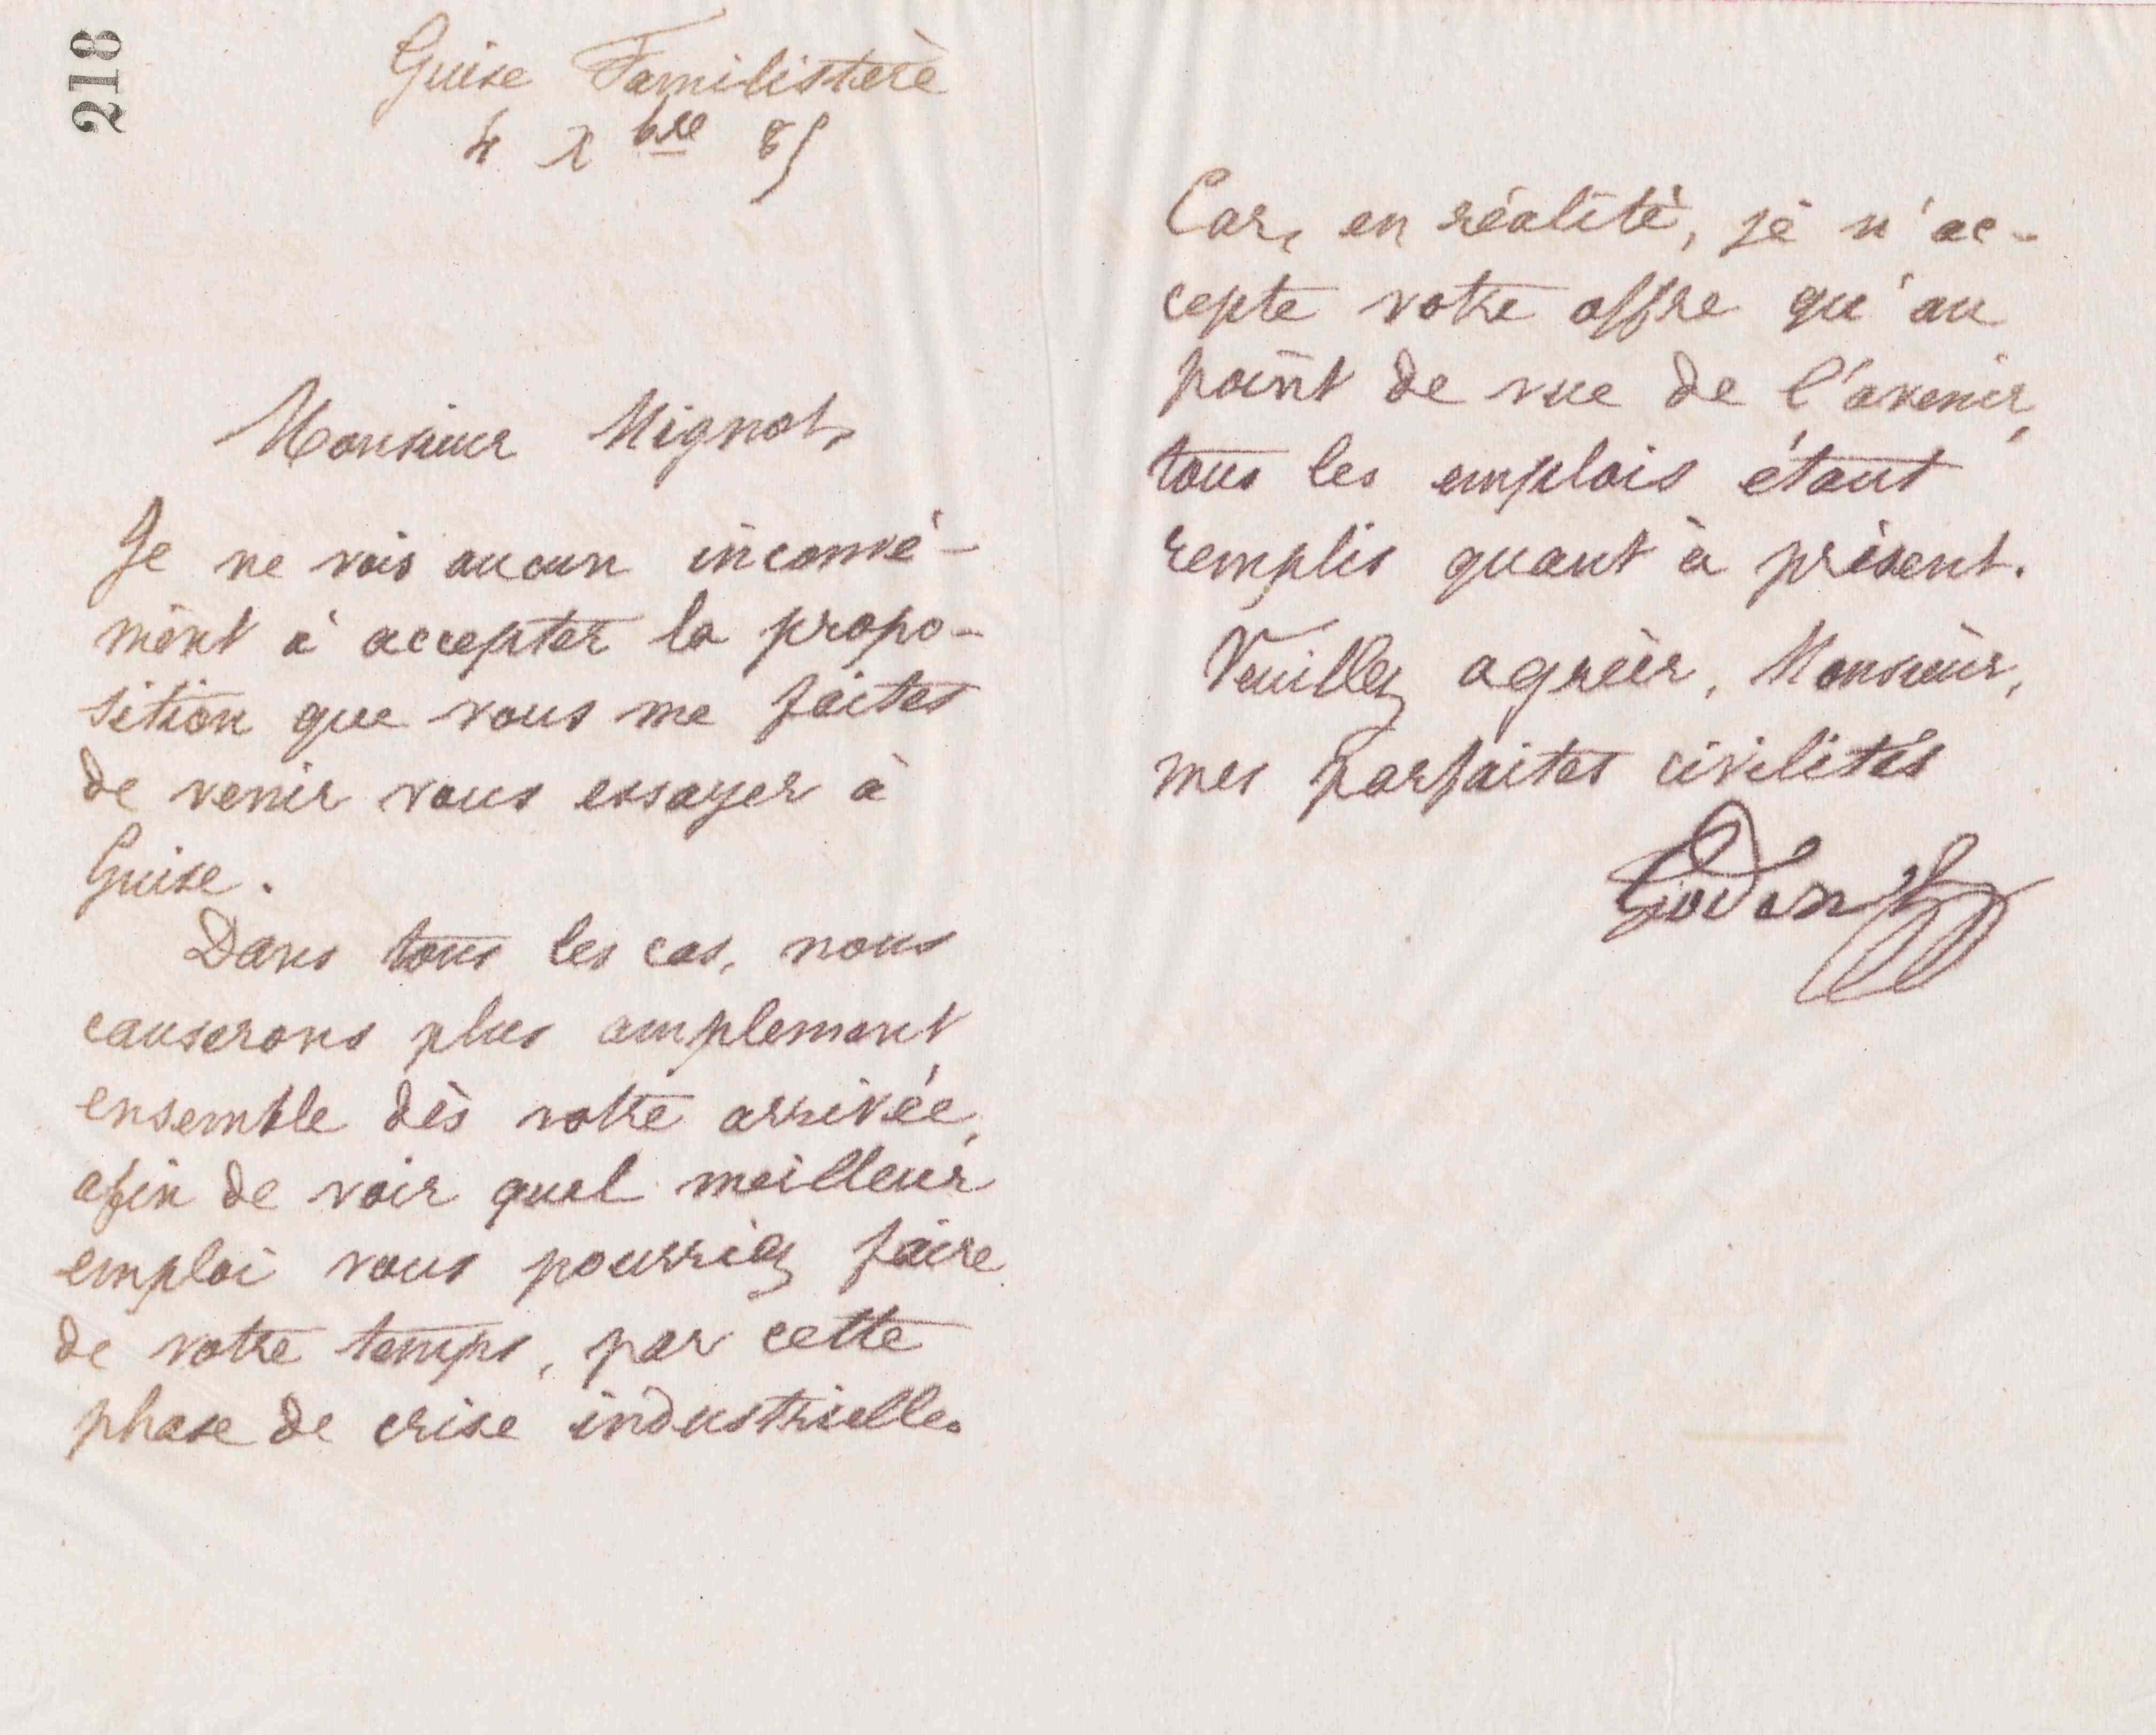 218
Guise Familistère
4 Xbre 85
Monsieur Mignot,
Je ne vois aucun inconvé-
nient à accepter la propo-
sition que vous me faites
de venir vous essayer à
Guise.
Dans tous les cas, nous
causerons plus amplement
ensemble dès votre arrivée,
afin de voir quel meilleur
emploi vous pourriez faire
de votre temps, par cette
phase de crise industrielle.
Car, en réalité, je n'ac-
cepte votre offre qu'au
point de vue de l'avenir,
tous les emplois étant
remplis quant à présent.
Veuillez agréer, Monsieur,
mes parfaites civilités
Godin